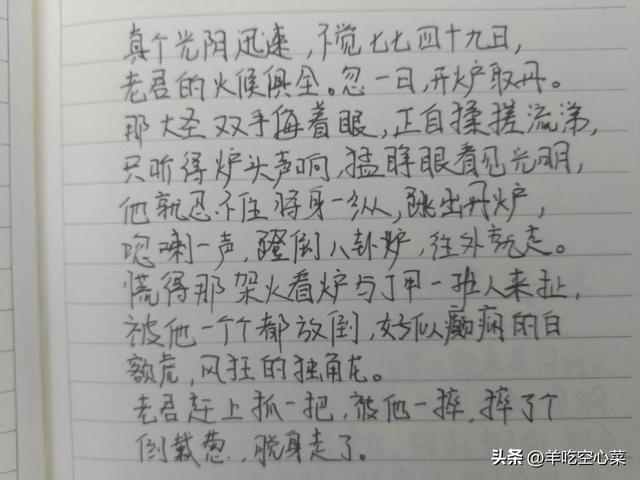 真个光阴迅速，不觉七七四十九日，
老君的火候俱全。忽一日，开炉取丹。
那大圣双手侮着眼，正自揉搓流涕，
只听得炉头声响，猛睁眼看见光明，
他就忍不住将身一纵，跳出丹炉，
唿喇一声，蹬倒八卦炉，往外就走。
慌得那架火看炉与丁甲一班人来扯，
被他一个个都放倒，好似癫痫的白
额虎，风狂的独角龙。
老君赶上抓一把，被他一摔，摔了个
倒栽葱，脱身走了。
头条 @羊吃空心菜